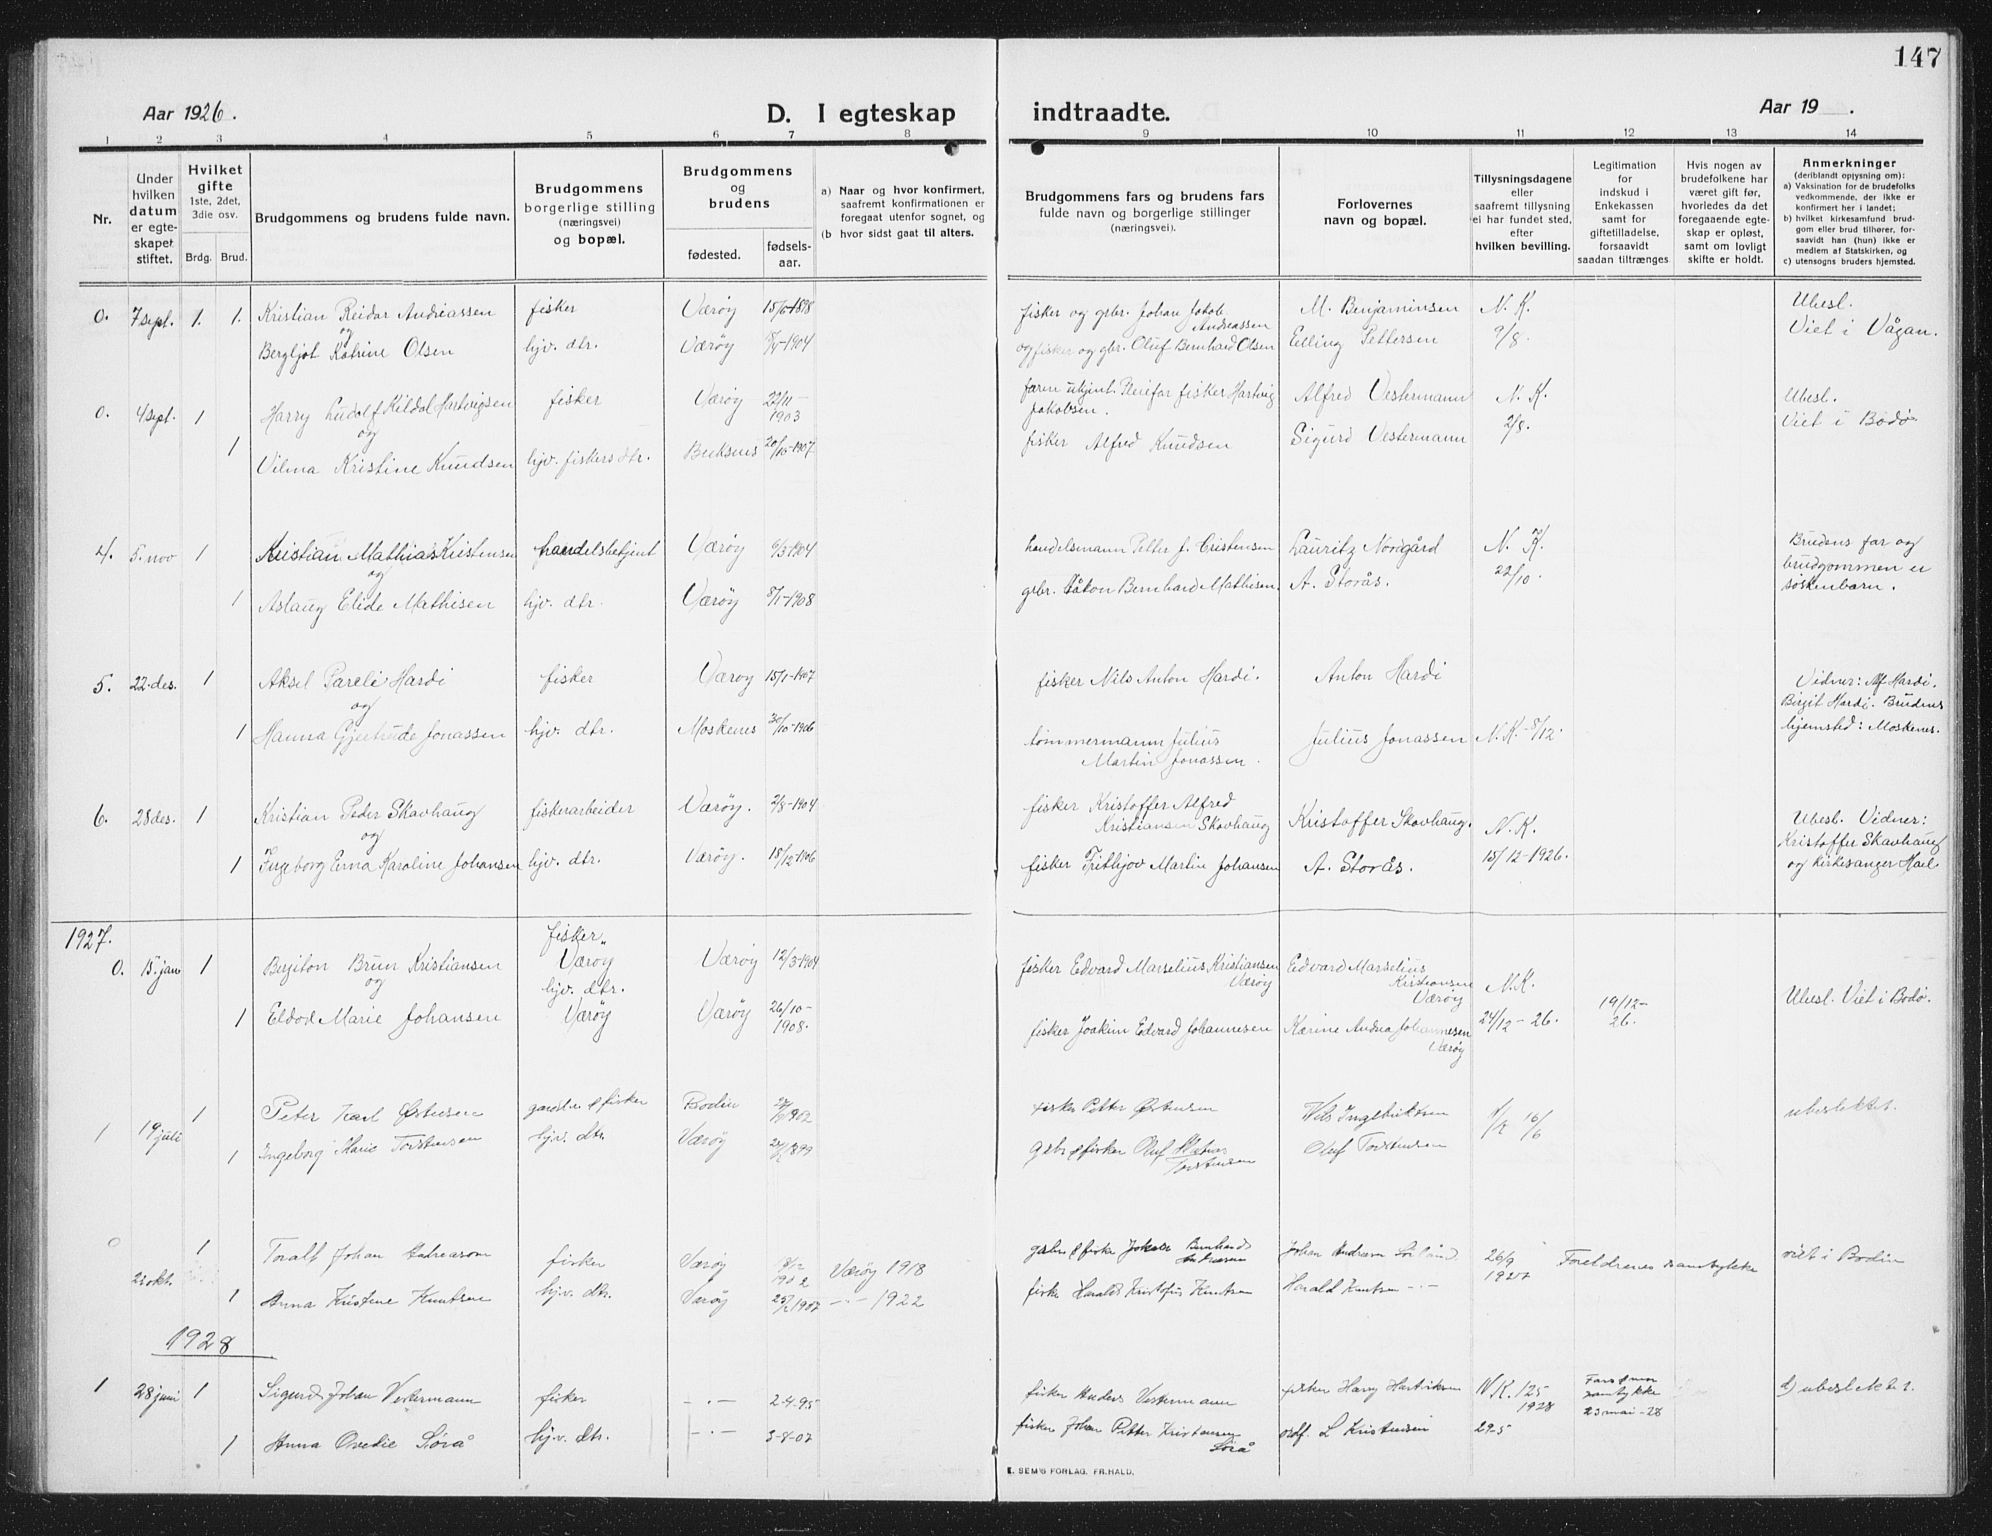 147
Aar 1926.
D. I egteskap
indtraadte.
Aar 19 .
1 2 3 4 5 6 7 8 9 10 11 12 13 14
Nr.
Under
hvilken
datum
er egte-
skapet
stiftet.
Hvilket
gifte
1ste, 2det,
3die osv.
Brdg. Brud.
Brudgommens og brudens fulde navn.
Brudgommens
borgerlige stilling
(næringsvei)
og bopæl.
Brudgommens
og
brudens
fødested.
fødsels-
aar.
a) Naar og hvor konfirmert,
saafremt konfirmationen er
foregaat utenfor sognet, og
(b hvor sidst gaat til alters.
Brudgommens fars og brudens fars
fulde navn og borgerlige stillinger
(næringsvei).
Forlovernes
navn og bopæl.
Tillysningsdagene
eller
saafremt tillysning
ei har fundet sted,
efter
hvilken bevilling.
Legitimation
for
indskud i
Enkekassen
samt for
giftetilladelse,
forsaavidt
saadan tiltrænges
Hvis nogen av
brudefolkene har
været gift før,
hvorledes da det
foregaaende egte-
skap er opløst,
samt om lovligt
skifte er holdt.
Anmerkninger
(deriblandt opjysning om):
a) Vaksination for de brudefolks
vedkommende, der ikke er
konfirmert her i landet;
b) hvilket kirkesamfund brud-
gom eller brud tilhører, for-
saavidt han (hun) ikke er
medlem af Statskirken, og
c) utensogns bruders hjemsted.
0. 7 sept. 1. 1. Kristian Reidar Andreassen fisker Værøy fisker og grbr. Johan Jakob M. Benjaminsen N. K. Ubesl.
og Andreassen Viet i Vågan.
Bergljot Katrine Olsen hjv. dtr. Værøy og fisker og gbr. Oluf Bernhard Olsen Elling Pettersen 9/8.
0. 4 sept. 1 Harry Ludolf Kildal Hartvigsen fisker Værøy 22/11-1903 farn ukjent. Pleiefar fisker Hartvig Alfred Vestermann N. K. Ubesl.
og Jakobsen. 2/8. Viet i Bodø
1 Vilma Kristine Knudsen hjv. fiskers dtr. Buksnes 20/10-1907 fisker Alfred Knudsen Sigurd Vestermann
4. 5. nov 1 Kristian Mathias Kristensen handelsbetjent Værøy 6/3-1904 handelsmann Petter J. Cristensen Lauritz Nordgård N. K. Brudens far og
og 22/10. brudgommen er
1 Aslaug Elide Mathisen hjv. dtr. Værøy grbr. Håkon Bernhard Mathisen. A. Storås. søskenbarn.
5. 22. des. 1 Aksel Pareli Hardi fisker Værøy 15/1-1907 fisker Nils Anton Hardi. Anton Hardi Vidner: Alf Hardi.
og Birgit Hardi. Brudens
1 Hanna Gjertrude Jonassen hjv. dtr. Moskenes 30/10-1906 tømmermann Julius Julius Jonassen N. K. - 8/12. hjemsted: Moskenes.
Martin Jonassen.
6. 28 des. 1 Kristian Peder Skavhaug fiskerarbeider Værøy. 2/8-1904 fisker Kristoffer Alfred Kristoffer Skavhaug. N. K. Ubesl. Vidner:
og Kristiansen Skavhaug Kristoffer Skavhaug
1 Ingeborg Erna Karoline Johansen hjv. dtr. Værøy. 18/12-1906 fisker Frithjov Martin Johansen A. Storås. 15/12-1926. og kirkesanger Hæl
1927.
0. 15 jan 1 Berjiton Brun Kristiansen fisker, Værøy Værøy 12/3-1904 fisker Edvard Marselius Kristiansen Edvard Marselius
og Værøy Kristiansen Værøy N. K.
1 Eldod Marie Johansen hjv. dtr. Værøy Værøy 26/10-1908. fisker Joakim Edvard Johannesen Karine Andrea Johannesen Værøy 24/12-26. 19/12-26. Ubesl. Viet i Bodø.
1 19 juli 1 Peter Karl Østensen gaardbr. & fisker Bodin fisker Petter Østensen Nils Ingebriktsen 16/6 ubeslektet.
1 Ingeborg Marie Torstensen hjv. dtr. Værøy grbr & fisker Oluf Torstensen Oluf Torstensen
0 okt. 1 Toralf Johan Andreassen fisker Værøy Værøy 1918 grbr. & fisker Jakob Bernhard Andreassen Johan Andreassen Sørland 26/9 1927 Foreldrenes samtykke viet i Bodin
1 Anna Kristine Knutsen hjv. dtr. Værøy -"- 1922 fisker Harald Kristofus Knutsen Harald Knutsen -"-
1928
1 28 juni 1 Sigurd Johan Vestermann fisker -"- 2-4-95 fisker Anders Vestermann fisker Harry Hartviksen N.K. 125 1928 Fars & mor samtykke 23 mai-28 b) ubeslektet.
1 Anna Ovedie Sørå hjv. dtr. -"- 3-8-07 fisker Johan Petter Kristensen Sørå ordf. L Kristensen 29-5
E. SEM'S FORLAG, FR.HALD.